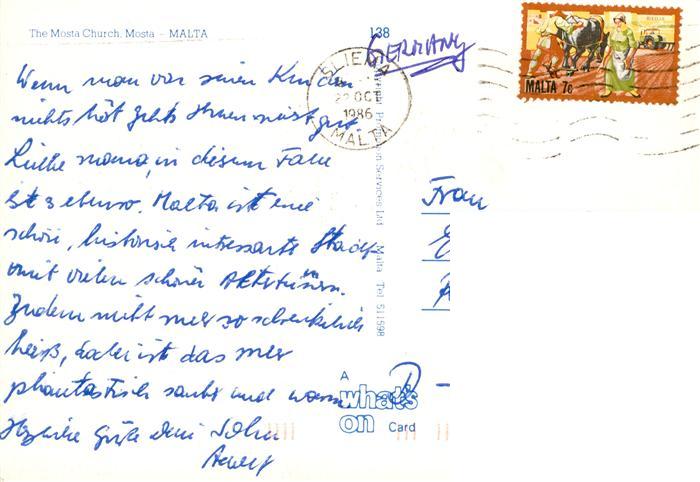 The Mosta Church, Mosta – MALTA
138
GERMANY
SLIEMA
22 OC
1986
MALTA
MALTA 7c
Wenn man von seinen Kindern
nichts hört gehts Ihnen meist gut.
Liebe Mama, in diesem Falle
ist es ebenso. Malta ist eine
schöne, historisch interessante Stadt
mit vielen schönen
Zudem nicht mehr so schrecklich
heiß, dabei ist das Meer
phantastisch sauber und warm
Herzliche Grüße Dein Sohn
Frau
Services Ltd Malta Tel 511598
A
what's
on Card
D –